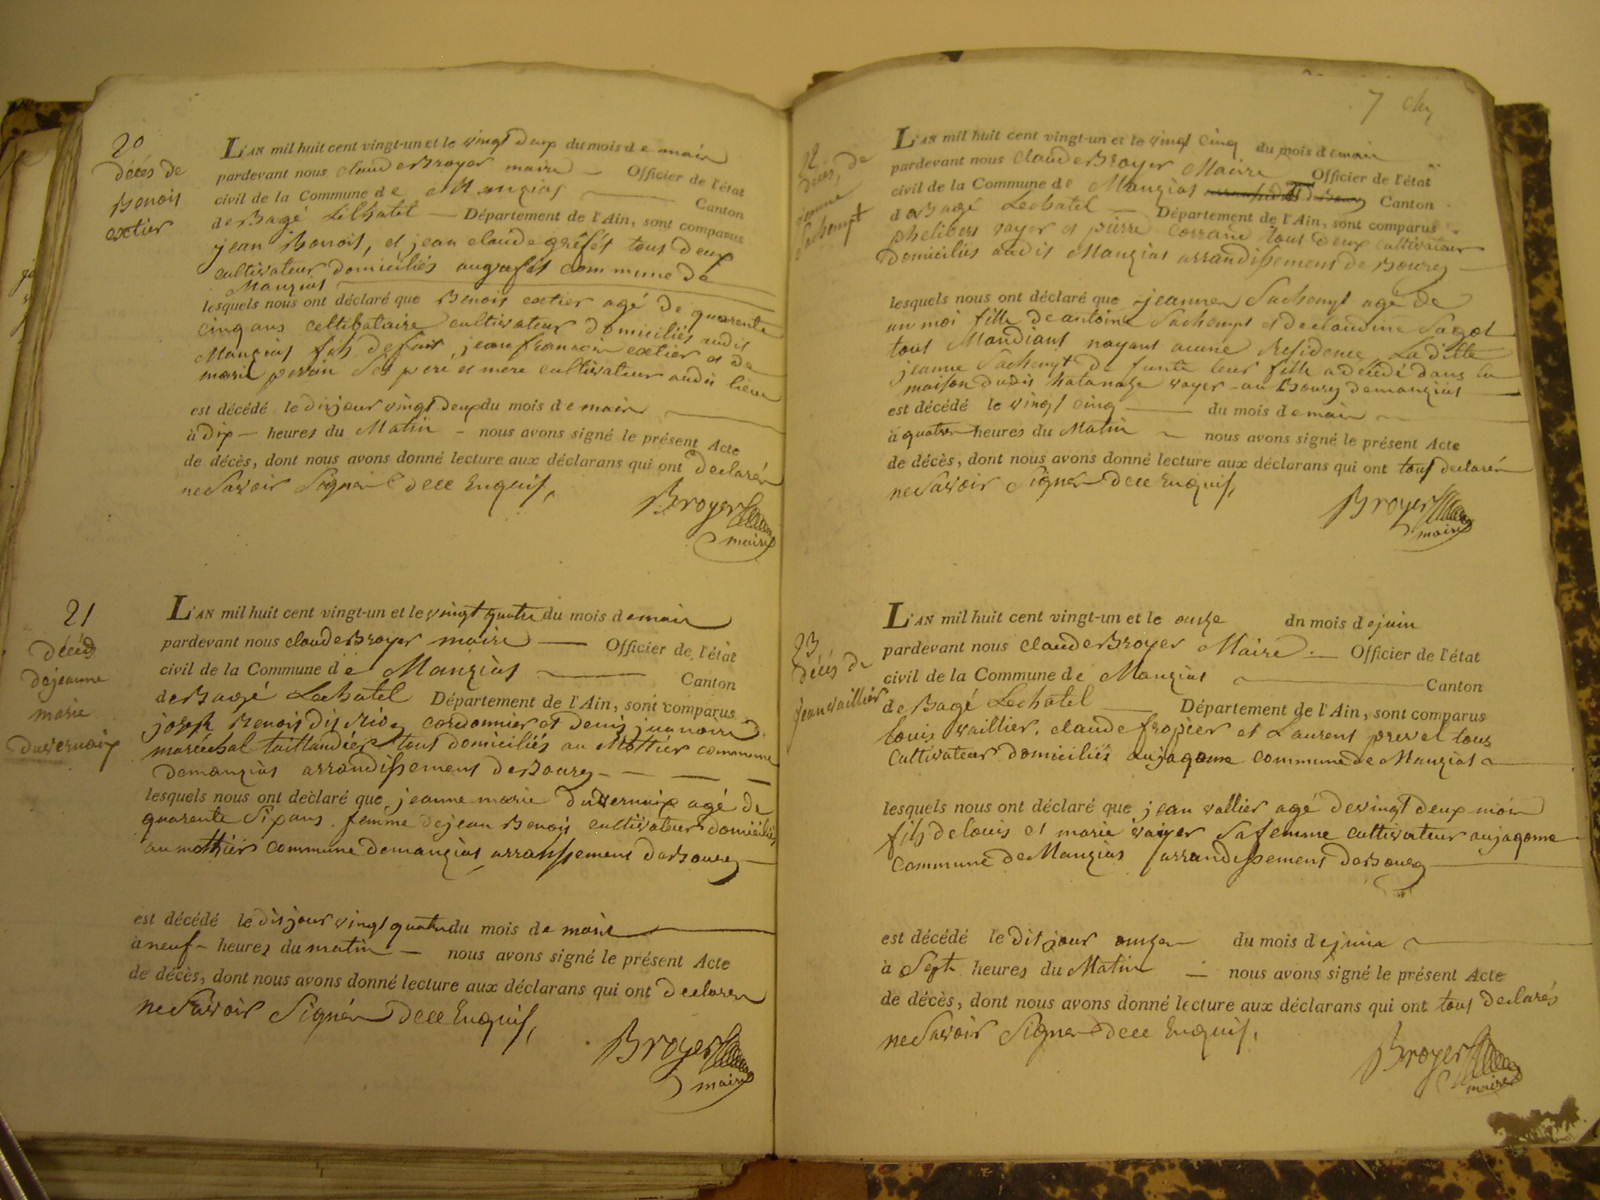 20
décés de
Benois
extier
L'AN mil huit cent vingt-un et le vingt deux du mois de mair
pardevant nous claude Broyer maire Officier de l'état
civil de la Commune de Manziat Canton
de Bagé Lechatel Département de l'Ain, sont comparus
jean Benois, et jean claude gréfét tous deux
cultivateur domiciliés commune de
Manziat
lesquels nous ont déclaré que Benois extier agé de quarente
cinq ans celibataire cultivateur domiciliés audis
Manziat fils defunt, jean francois extier et de
marie perrin ses pere et mere cultivateur audis lieux
est décédé le dis jour vingt deux du mois de mair
à dix heures du Matin nous avons signé le présent Acte
de décès, dont nous avons donné lecture aux déclarans qui ont declarés
ne Savoir Signer De ce Enquis,
Broyer
maire
21
décéd
de jeanne
marie
duvernaix
L'AN mil huit cent vingt-un et le vingt quatre du mois de mair
pardevant nous claude Broyer maire Officier de l'état
civil de la Commune de Manziat Canton
de Bagé Lechatel Département de l'Ain, sont comparus
joseph Benois dis cordonnier et denis
maréchal taillandier tous domiciliés au Mottier commune
de manziat arrondissement de Bourg
lesquels nous ont déclaré que jeanne marie duvernaix agé de
quarente Six ans femme de jean Benois cultivateur domiciliés
au mottier commune de manziat, arronssement de Bourg
est décédé le dis jour vingt quatre du mois de mair
à neuf heures du matin nous avons signé le présent Acte
de décès, dont nous avons donné lecture aux déclarans qui ont declaren
ne Savoir Signer De ce Enquis,
Broyer
maire
7
22
décés, de
jeanne
L'AN mil huit cent vingt-un et le vingt cinq du mois de mair
pardevant nous claude Broyer Maire Officier de l'état
civil de la Commune de Manziat Canton
de Bagé Lechatel Département de l'Ain, sont comparus
phelibers voyer et pierre tous deux cultivateur
domiciliés audis Manziat arrondissement de Bourg
lesquels nous ont déclaré que jeanne Sachempt agé de
un moi fille de antoine Sachempt et de claudine
tous Mandians nayant aucune Residence La ditte
jeanne Sachempt leur fille a décédé dans la
maison dudis voyer au Bourg de manziat
est décédé le vingt cinq du mois de mair
à quatre heures du Matin nous avons signé le présent Acte
de décès, dont nous avons donné lecture aux déclarans qui ont tous declarés
ne Savoir Signer De ce Enquis,
Broyer
maire
23
décés de
jean vaillier
L'AN mil huit cent vingt-un et le onze du mois de juin
pardevant nous claude Broyer Maire Officier de l'état
civil de la Commune de Manziat Canton
de Bagé Lechatel Département de l'Ain, sont comparus
louis vaillier, claude fropier et Laurent prevel tous
cultivateur domiciliés aujagome commune de Manziat
lesquels nous ont déclaré que jean vallier agé de vingt deux moir
fils de louis et marie voiyer Sa femme cultivateur aujagome
commune de Manziat arrondissement de Boug
est décédé le dis jour onze du mois de juin
à Sept heures du Matin nous avons signé le présent Acte
de décès, dont nous avons donné lecture aux déclarans qui ont tous declarés
ne Savoir Signer De ce Enquis,
Broyer
maire